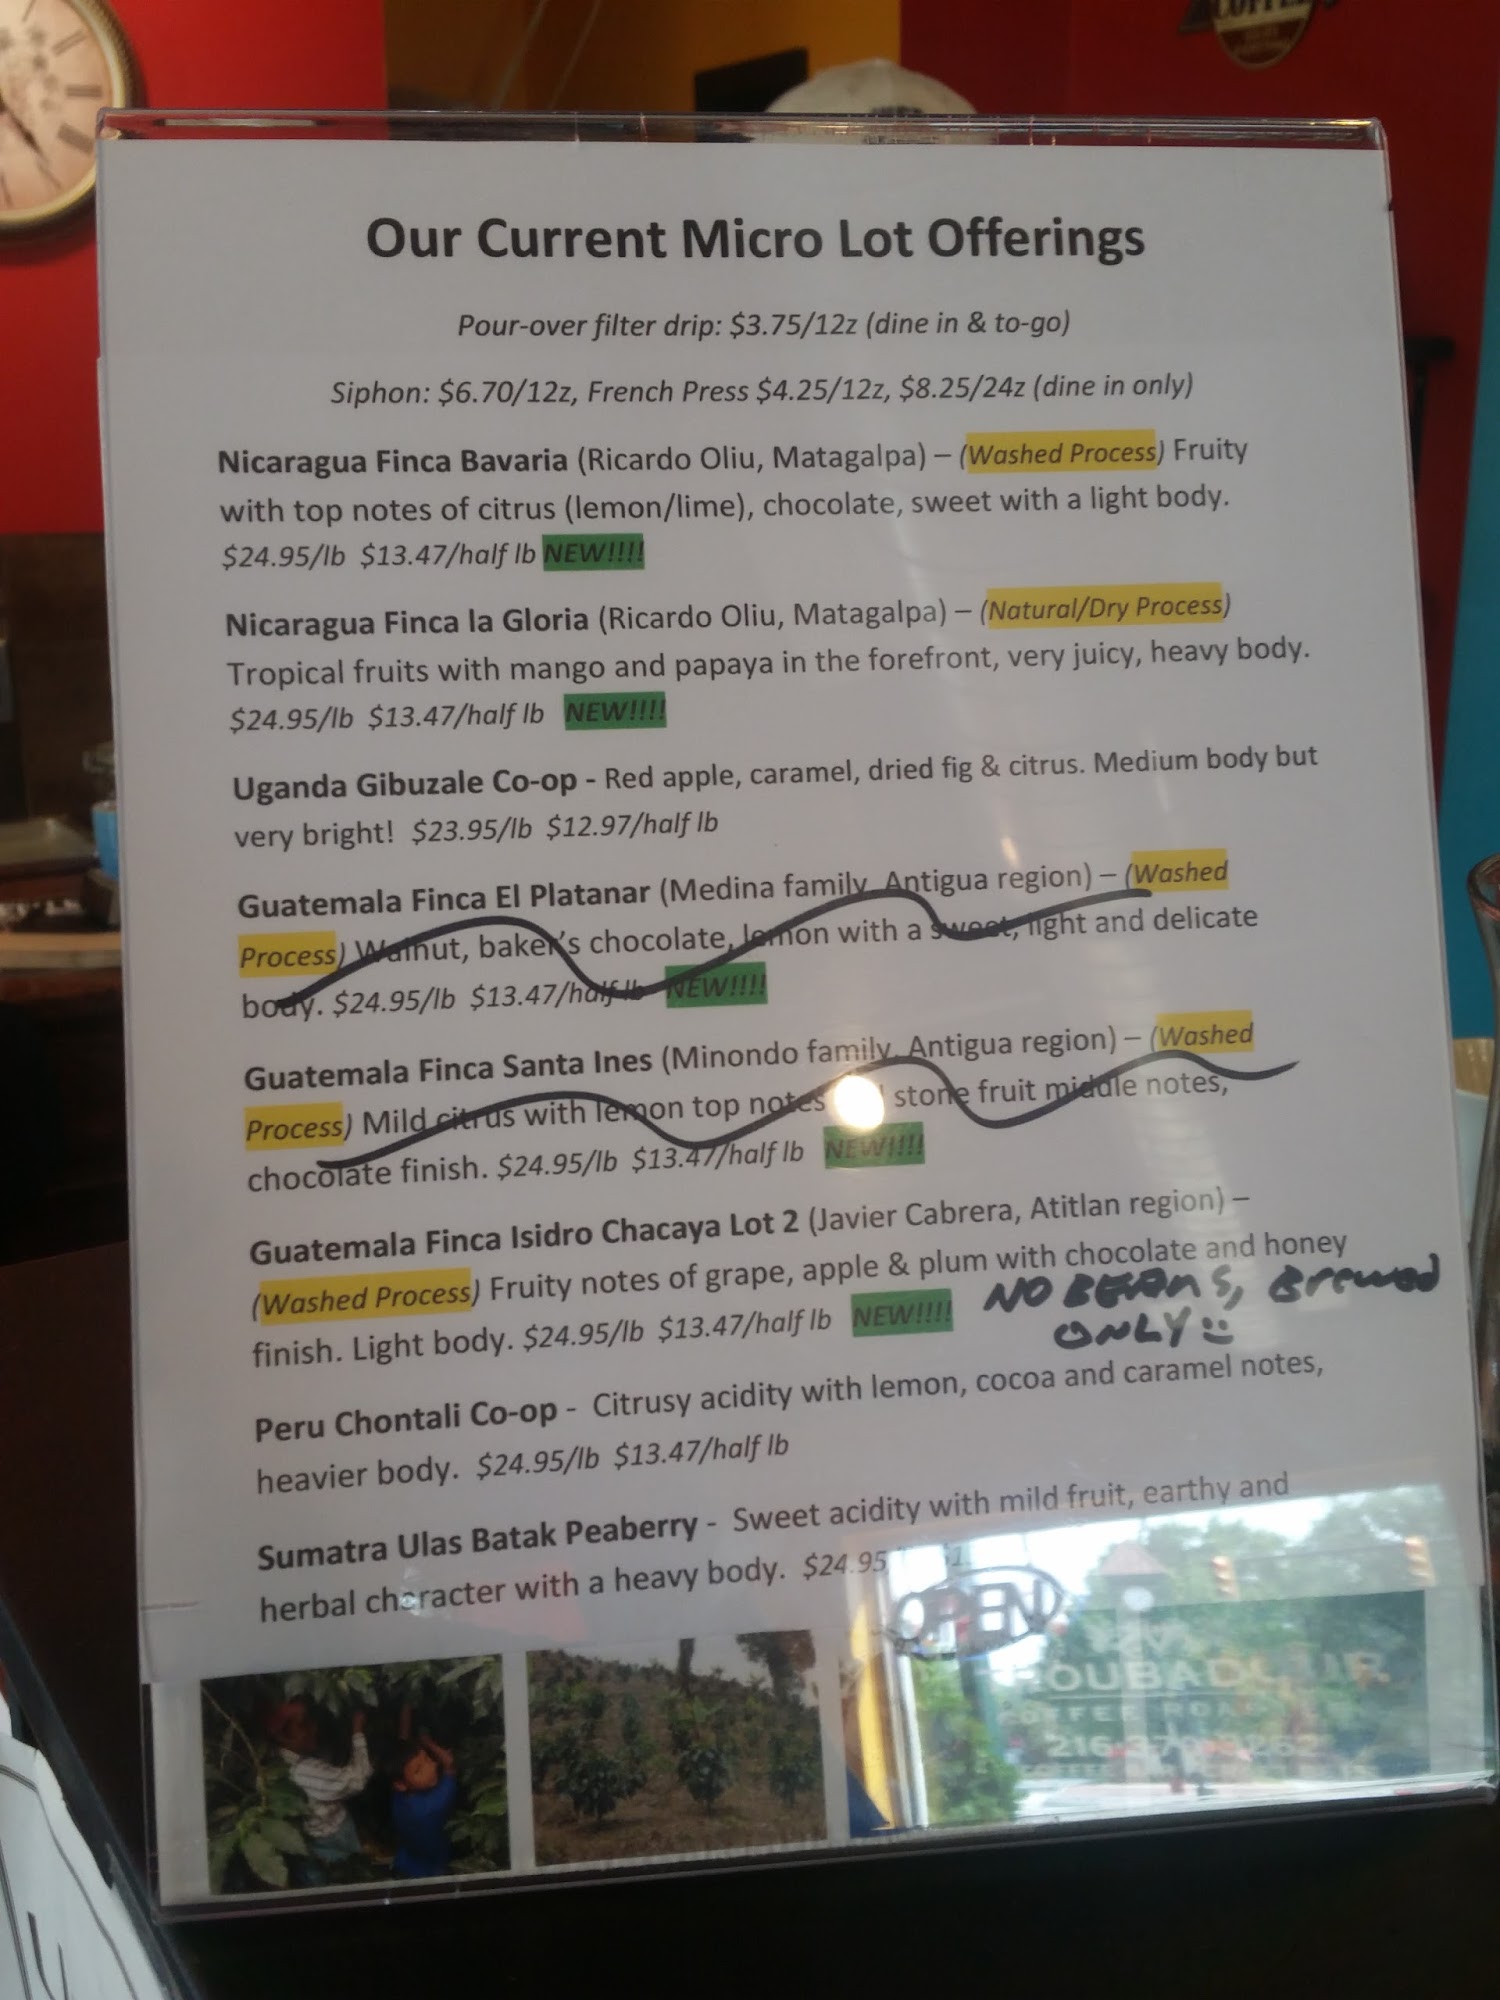 COFFEE
Our Current Micro Lot Offerings
Pour-over filter drip: $3.75/12z (dine in & to-go)
Siphon: $6.70/12z, French Press $4.25/12z, $8.25/24z (dine in only)
Nicaragua Finca Bavaria (Ricardo Oliu, Matagalpa) – (Washed Process) Fruity
with top notes of citrus (lemon/lime), chocolate, sweet with a light body.
$24.95/lb $13.47/half lb NEW!!!!
Nicaragua Finca la Gloria (Ricardo Oliu, Matagalpa) – (Natural/Dry Process)
Tropical fruits with mango and papaya in the forefront, very juicy, heavy body.
$24.95/lb $13.47/half lb NEW!!!!
Uganda Gibuzale Co-op - Red apple, caramel, dried fig & citrus. Medium body but
very bright! $23.95/lb $12.97/half lb
Guatemala Finca El Platanar (Medina family, Antigua region) – (Washed
Process) Walnut, baker's chocolate, lemon with a sweet, light and delicate
body. $24.95/lb $13.47/half lb NEW!!!!
Guatemala Finca Santa Ines (Minondo family, Antigua region) – (Washed
Process) Mild citrus with lemon top notes stone fruit middle notes,
chocolate finish. $24.95/lb $13.47/half lb NEW!!!!
Guatemala Finca Isidro Chacaya Lot 2 (Javier Cabrera, Atitlan region) –
(Washed Process) Fruity notes of grape, apple & plum with chocolate and honey
finish. Light body. $24.95/lb $13.47/half lb NEW!!!!
NO BEANS, BREWED
ONLY
Peru Chontali Co-op - Citrusy acidity with lemon, cocoa and caramel notes,
heavier body. $24.95/lb $13.47/half lb
Sumatra Ulas Batak Peaberry - Sweet acidity with mild fruit, earthy and
herbal character with a heavy body. $24.95
OPEN